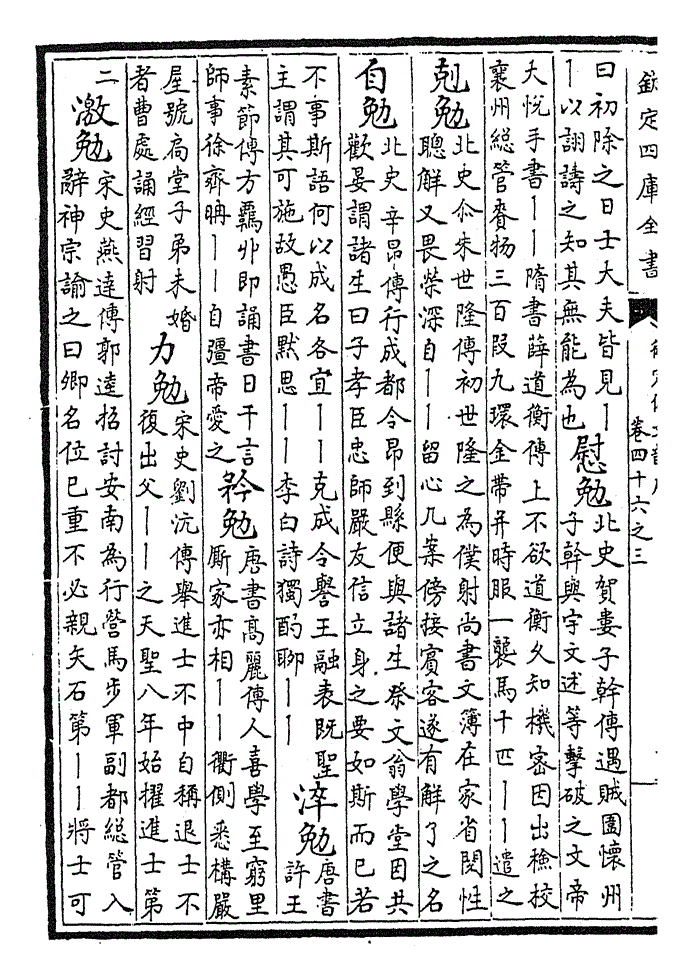 欽定四庫全書
卷四十六之三
曰初除之日士大夫皆見丨
丨以詡譸之知其無能為也
慰勉
北史賀婁子幹傳遇賊圍懷州
子幹與宇文述等擊破之文帝
大悅手書丨丨隋書薛道衡傳上不欲道衡久知機密因出檢校
襄州總管賚物三百段九環金帶并時服一襲馬十匹丨丨遣之
剋勉
北史尒朱世隆傳初世隆之為僕射尚書文簿在家省閱性
聰解又畏榮深自丨丨留心几案傍接賓客遂有解了之名
自勉
北史辛昂傳行成都令昂到縣便與諸生祭文翁學堂因共
歡宴謂諸生曰子孝臣忠師嚴友信立身之要如斯而已若
不事斯語何以成名各宜丨丨克成令譽王融表既聖
主謂其可施故愚臣默思丨丨丨李白詩獨酌聊丨丨
淬勉
唐書
許王
素節傳方羈丱即誦書日千言
師事徐齊聃丨丨自彊帝愛之
矜勉
唐書高麗傳人喜學至窮里
厮家亦相丨丨衢側悉構嚴
屋號局堂子弟未婚
者曹處誦經習射
力勉
宋史劉沆傳舉進士不中自稱退士不
復出父丨丨之天聖八年始擢進士第
二
激勉
宋史燕達傳郭逵招討安南為行營馬步軍副都總管入
辭神宗諭之曰卿名位已重不必親矢石第丨丨將士可